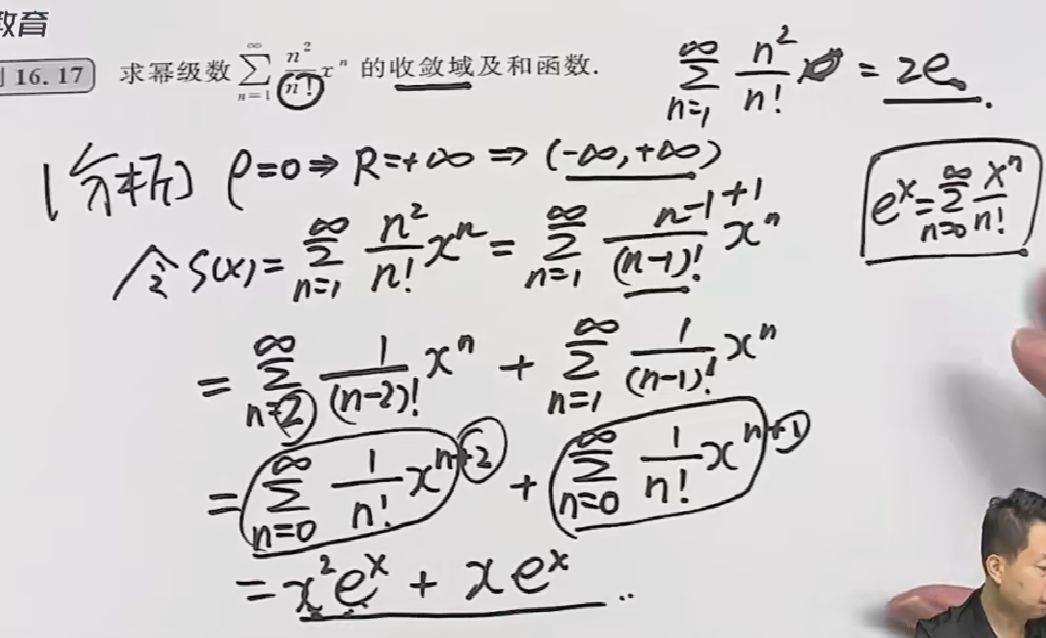 教育
例 16.17 求幂级数 $\sum_{n=1}^{\infty} \frac{n^2}{n!} x^n$ 的收敛域及和函数.
$\sum_{n=1}^{\infty} \frac{n^2}{n!} = 2e$.
[分析] $\rho=0 \Rightarrow R=+\infty \Rightarrow (-\infty,+\infty)$
$e^x = \sum_{n=0}^{\infty} \frac{x^n}{n!}$
令 $S(x) = \sum_{n=1}^{\infty} \frac{n^2}{n!} x^n = \sum_{n=1}^{\infty} \frac{n-1+1}{(n-1)!} x^n$
$= \sum_{n=2}^{\infty} \frac{1}{(n-2)!} x^n + \sum_{n=1}^{\infty} \frac{1}{(n-1)!} x^n$
$= \sum_{n=0}^{\infty} \frac{1}{n!} x^{n+2} + \sum_{n=0}^{\infty} \frac{1}{n!} x^{n+1}$
$= x^2 e^x + x e^x$ ..